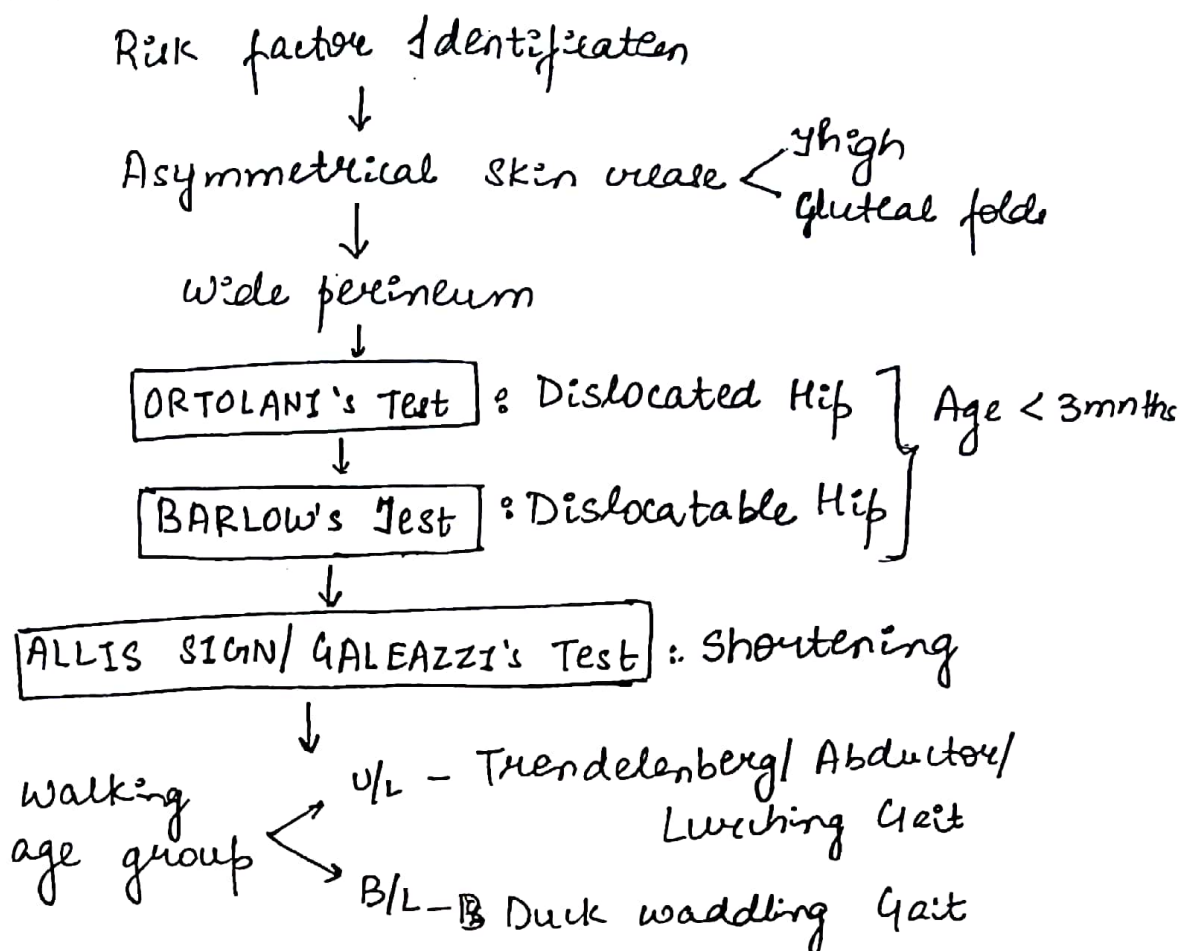 Risk factor Identification
Asymmetrical skin crease
Thigh
Gluteal folds
Wide perineum
ORTOLANI's Test : Dislocated Hip
Age < 3mnths
BARLOW's Test : Dislocatable Hip
ALLIS SIGN/ GALEAZZI's Test : Shortening
Walking
age group
U/L - Trendelenberg/ Abductor/
Lurching Gait
B/L - Duck waddling Gait